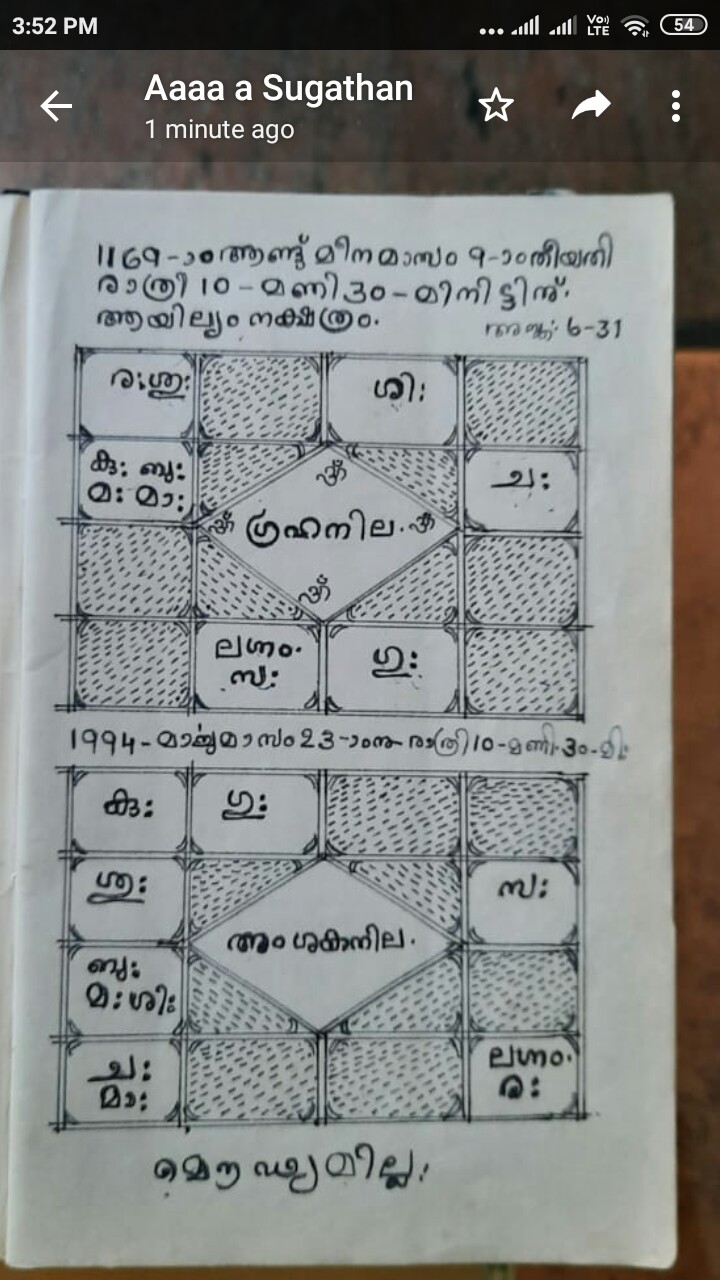 3:52 PM
Vo) LTE 54
Aaaa a Sugathan
1 minute ago
1169-ാം ആണ്ട് മീനമാസം 9-ാം തീയതി
രാത്രി 10-മണി 30-മിനിട്ടിന്.
ആയില്യം നക്ഷത്രം.
6-31
ര: ശു: ശി:
കു: ബു: ച:
മ: മാ:
ഗ്രഹനില.
ലഗ്നം. ഗു:
സ:
1994-മാർച്ചുമാസം 23-ാംനു രാത്രി 10-മണി.30-മി:
കു: ഗു:
ശു: സ:
അംശകനില.
ബു:
മ: ശി:
ച: ലഗ്നം.
മാ: ര:
മൌഢ്യമില്ല!